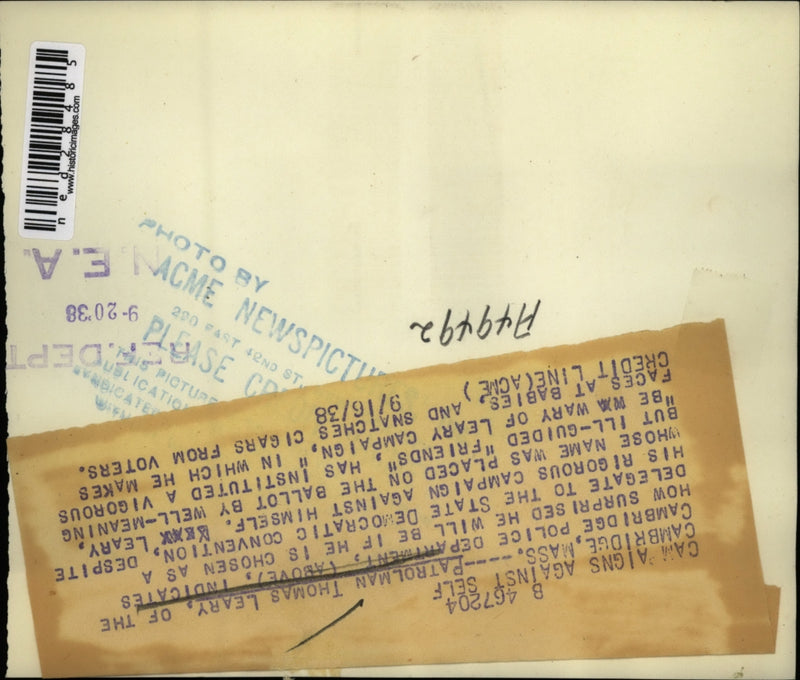 ned28485
www.historicimages.com
N.E.A.
9-20'38
REF. DEPT
PHOTO BY
ACME NEWSPICTU
220 EAST 42ND ST.
PLEASE CR
THIS PICTURE
PUBLICATIO
SYNDICATE
A494492
B 467204
CAM AIGNS AGAINST SELF
CAMBRIDGE, MASS.----PATROLMAN THOMAS LEARY, OF THE
CAMBRIDGE POLICE DEPARTMENT, (ABOVE), INDICATES
HOW SURPRISED HE WILL BE IF HE IS CHOSEN AS A
DELEGATE TO THE STATE DEMOCRATIC CONVENTION, DESPITE
HIS RIGOROUS CAMPAIGN AGAINST HIMSELF. LEARY,
WHOSE NAME WAS PLACED ON THE BALLOT BY WELL-MEANING
BUT ILL-GUIDED "FRIENDS", HAS INSTITUTED A VIGOROUS
"BE WARY OF LEARY CAMPAIGN, " IN WHICH HE MAKES
FACES AT BABIES, AND SNATCHES CIGARS FROM VOTERS.
CREDIT LINE(ACME) 9/16/38